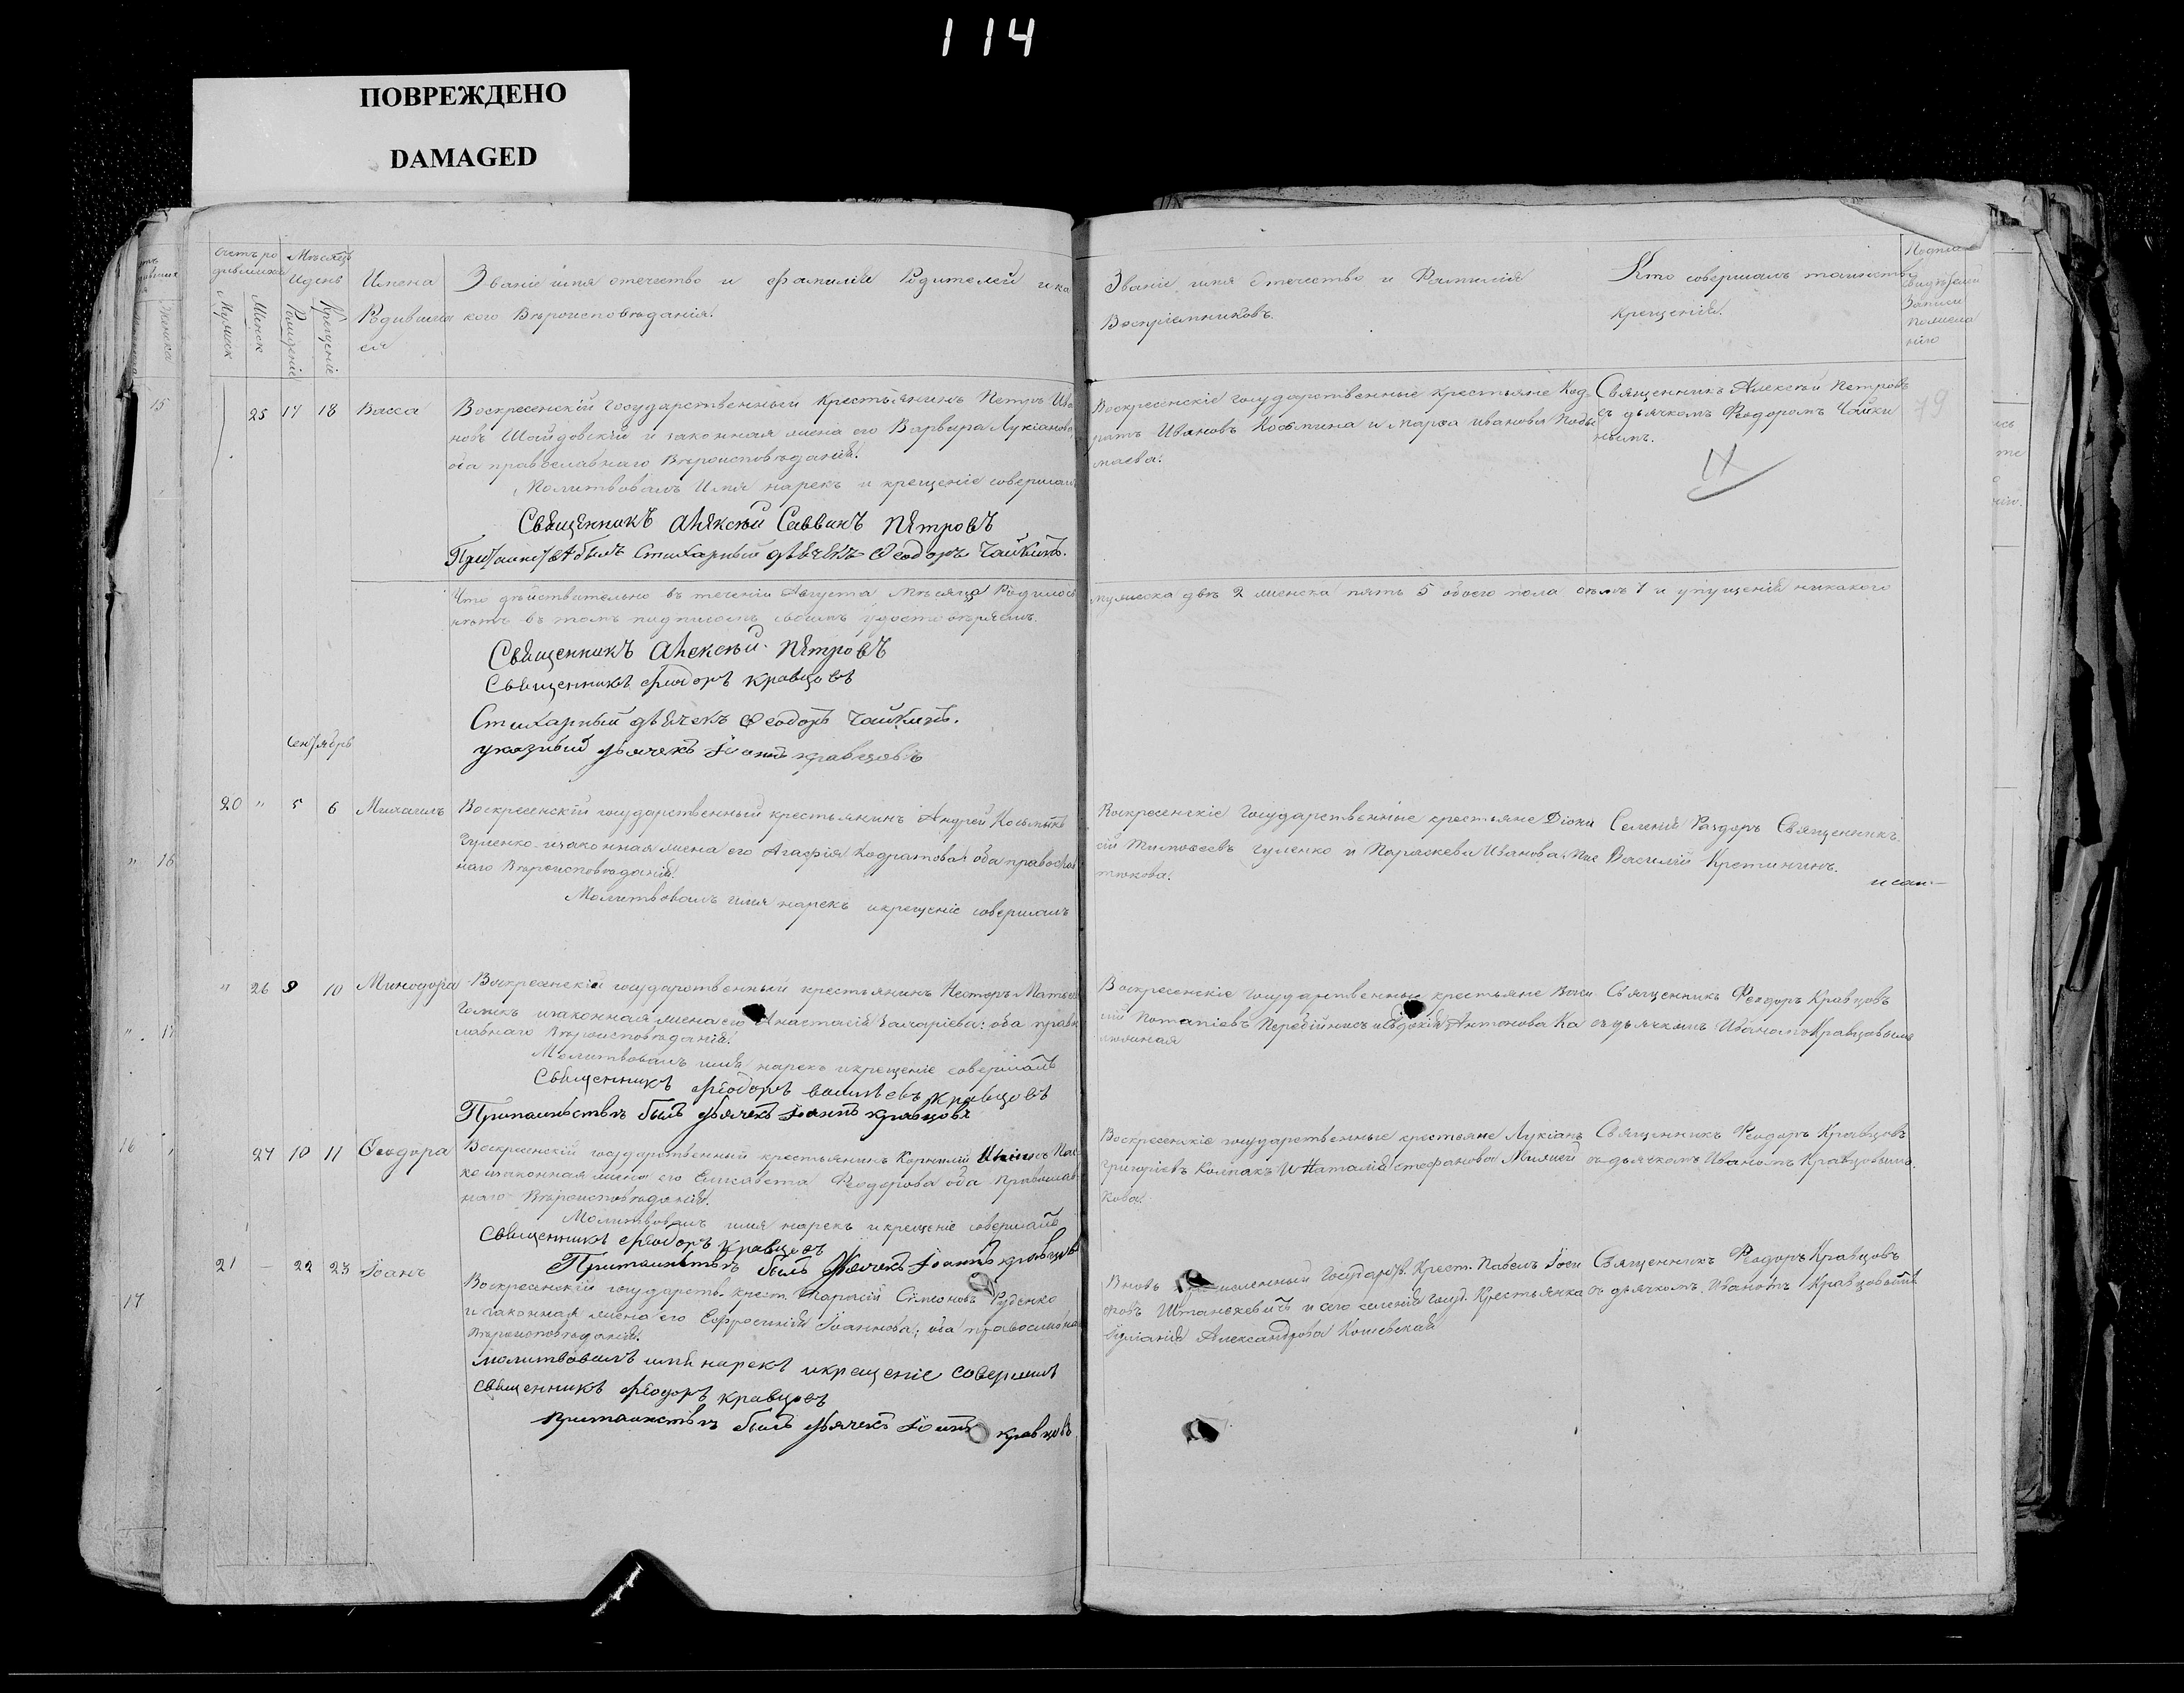 114
ПОВРЕЖДЕНО
DAMAGED
Счетъ ро
дившихся
Мужск
Женск
Мѣсяцъ
и день
Рожденіе
Крещеніе
Имена
Родивших
ся
Званіе имя отечество и фамилія Родителей и ка
кого Вѣроисповѣданія.
Званіе, имя Отечество и Фамилія
Воспріемниковъ.
Кто совершалъ таинство
крещенія.
25 17 18 Васса
Воскресенскій Государственный крестьянинъ Петръ Ива
новъ Шайдовскій и законная жена его Варвара Лукіанова,
оба православнаго Вѣроисповѣданія.
Молитвовалъ Имя нарекъ и крещеніе совершалъ
Священникъ Алексѣй Саввинъ Петровъ
При таинствѣ былъ Стихарный дьячекъ Ѳеодоръ Чайкинъ.
Воскресенскіе государственные крестьяне Код
ратъ Ивановъ Косьмина и Марѳа Иванова
Священникъ Алексѣй Петровъ
съ дьячкомъ Ѳеодоромъ Чайки
нымъ.
79
Что дѣйствительно въ теченіи Августа Мѣсяца Родилось
мужеска два 2 женска пять 5 обоего пола семь 7 и упущенія никакого
нѣтъ въ томъ подписомъ своимъ удостовѣряемъ.
Священникъ Алексѣй Петровъ
Священникъ Феодоръ Кравцовъ
Стихарный дьячекъ Ѳеодоръ Чайкинъ.
указный дьячекъ Іоанъ Кравцовъ
Сентябрь
20 " 5 6 Михаилъ
Воскресенскій государственный крестьянинъ Андрей Косьминъ
Гуленко и законная жена его Агафія Кодратова: оба православ
наго Вѣроисповѣданія.
Молитвовалъ имя нарекъ и крещеніе совершалъ
Воскресенскіе Государственные крестьяне Діони
сій Тимоѳеевъ Гуленко и Параскева Иванова
тюкова.
Селенія Раздоръ Священникъ
Василій Кретининъ.
" 26 9 10 Минодора
Воскресенскій государственный крестьянинъ Несторъ Матвѣе
и законная жена его Анастасія Захаріева: оба право
славнаго Вѣроисповѣданія.
Молитвовалъ имя нарекъ и крещеніе совершалъ
Священникъ Феодоръ Васильевъ Кравцовъ
При таинствѣ былъ дьячекъ Іоанъ Кравцовъ
Воскресенскіе Государственные крестьяне Васи
лій Потапіевъ Перебійнисъ и Евдокія Антонова Ка
Священникъ Феодоръ Кравцовъ
съ дьячкомъ Иваномъ Кравцовымъ
27 10 11 Ѳеодора
Воскресенскій государственный крестьянинъ Корнилій
и законная жена его Елисавета Феодорова оба Православ
наго Вѣроисповѣданія.
Молитвовалъ имя нарекъ и крещеніе совершалъ
Священникъ Феодоръ Кравцовъ
При таинствѣ былъ дьячекъ Іоанъ Кравцовъ
Воскресенскіе государственные крестьяне Лукіанъ
Григоріевъ Колпакъ и Наталія Стефанова
кова.
Священникъ Феодоръ Кравцовъ
съ дьячкомъ Иваномъ Кравцовымъ.
21 — 22 23 Іоанъ
Воскресенскій государств. крест. Тарасій Симеоновъ Руденко
и законная жена его Евфросинія Іоаннова; оба православна
Вѣроисповѣданія.
Молитвовалъ имя нарекъ и крещеніе совершилъ
Священникъ Феодоръ Кравцовъ
При таинствѣ былъ дьячекъ Іоанъ Кравцовъ
Вновь Государств. Крест. Павелъ Іоси
фовъ Штанкевичъ и сего селенія госуд. Крестьянка
Іуліанія Александрова Кошевская
Священникъ Феодоръ Кравцовъ
съ дьячкомъ Иваномъ Кравцовымъ